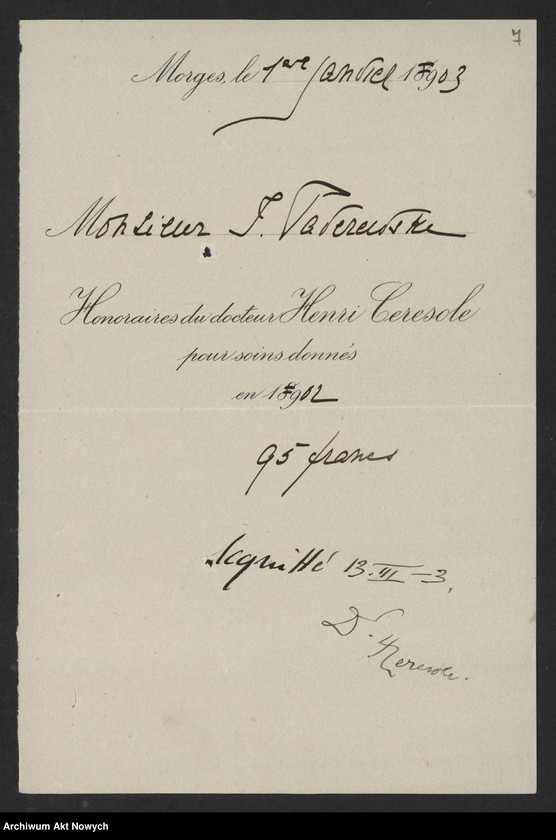 7
Morges, le 1er Janvier 1903
Monsieur J. Paderewski
Honoraires du docteur Henri Ceresole
pour soins donnés
en 1902
95 francs
Acquitté 13.III-3.
Dr. H Ceresole.
Archiwum Akt Nowych